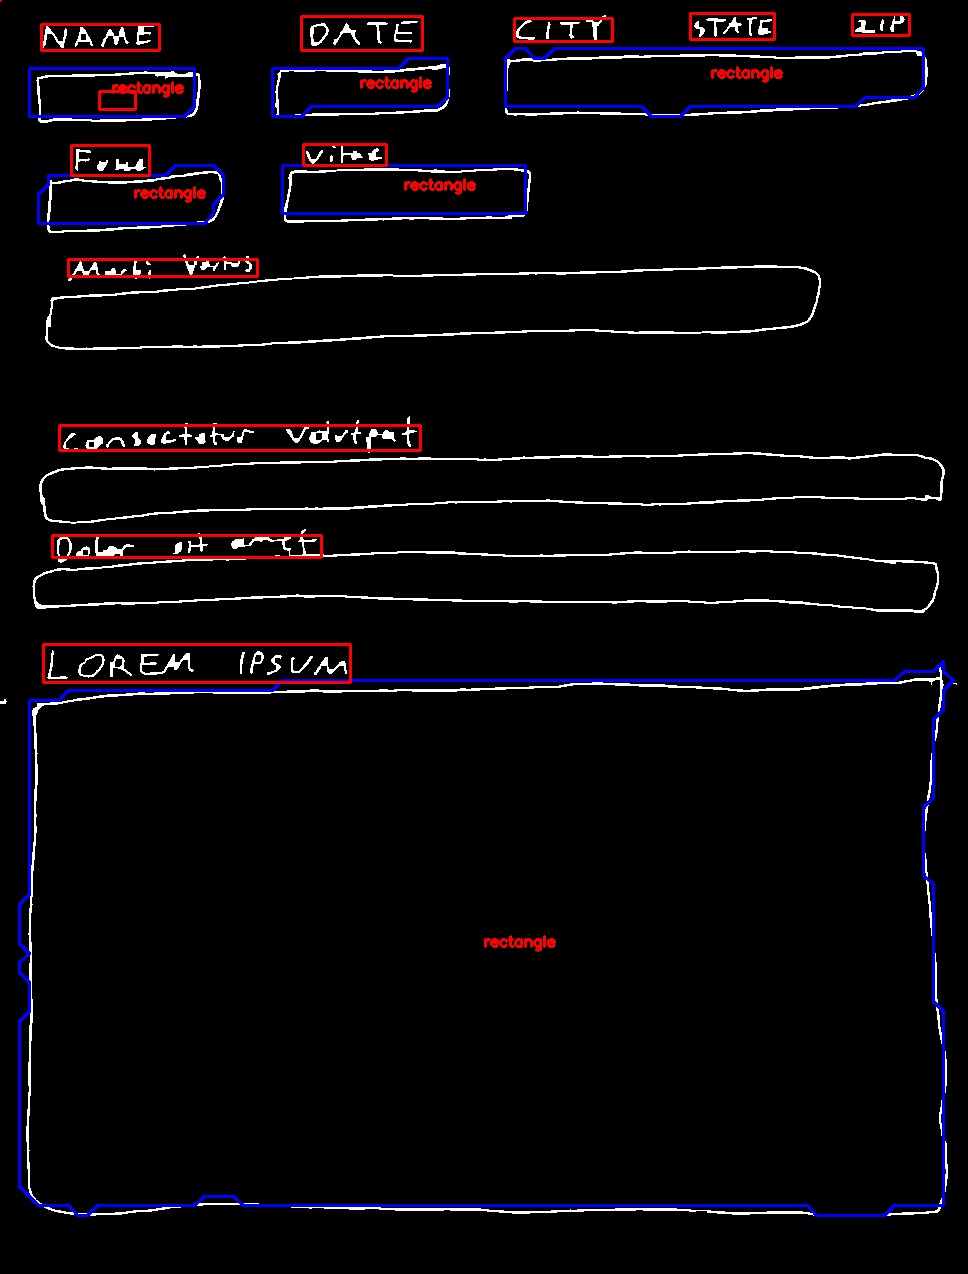 NAME DATE CITY STATE ZIP
rectangle rectangle rectangle
vitae
rectangle rectangle
Morbi Varius
Consectetur Volutpat
Dolor sit amet
LOREM IPSUM
rectangle